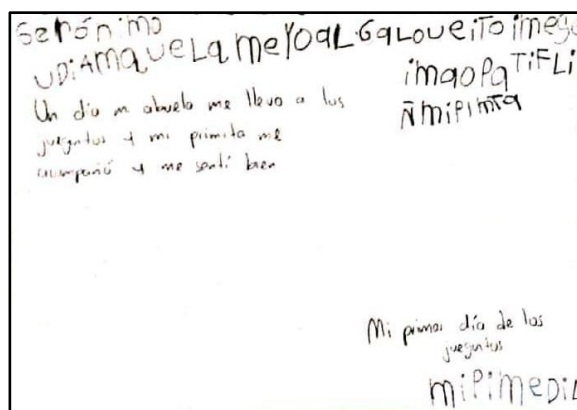 Gerónimo
UDIAMAQUELAMEYOAL.GALOUEITOIMEGU
IMAOPATIFLI
ÑMIPIMTA
Un día m abuela me llevo a los
jueguitos y mi primita me
acompañó y me sentí bien
Mi primer día de los
jueguitos
MIPIMEDIA